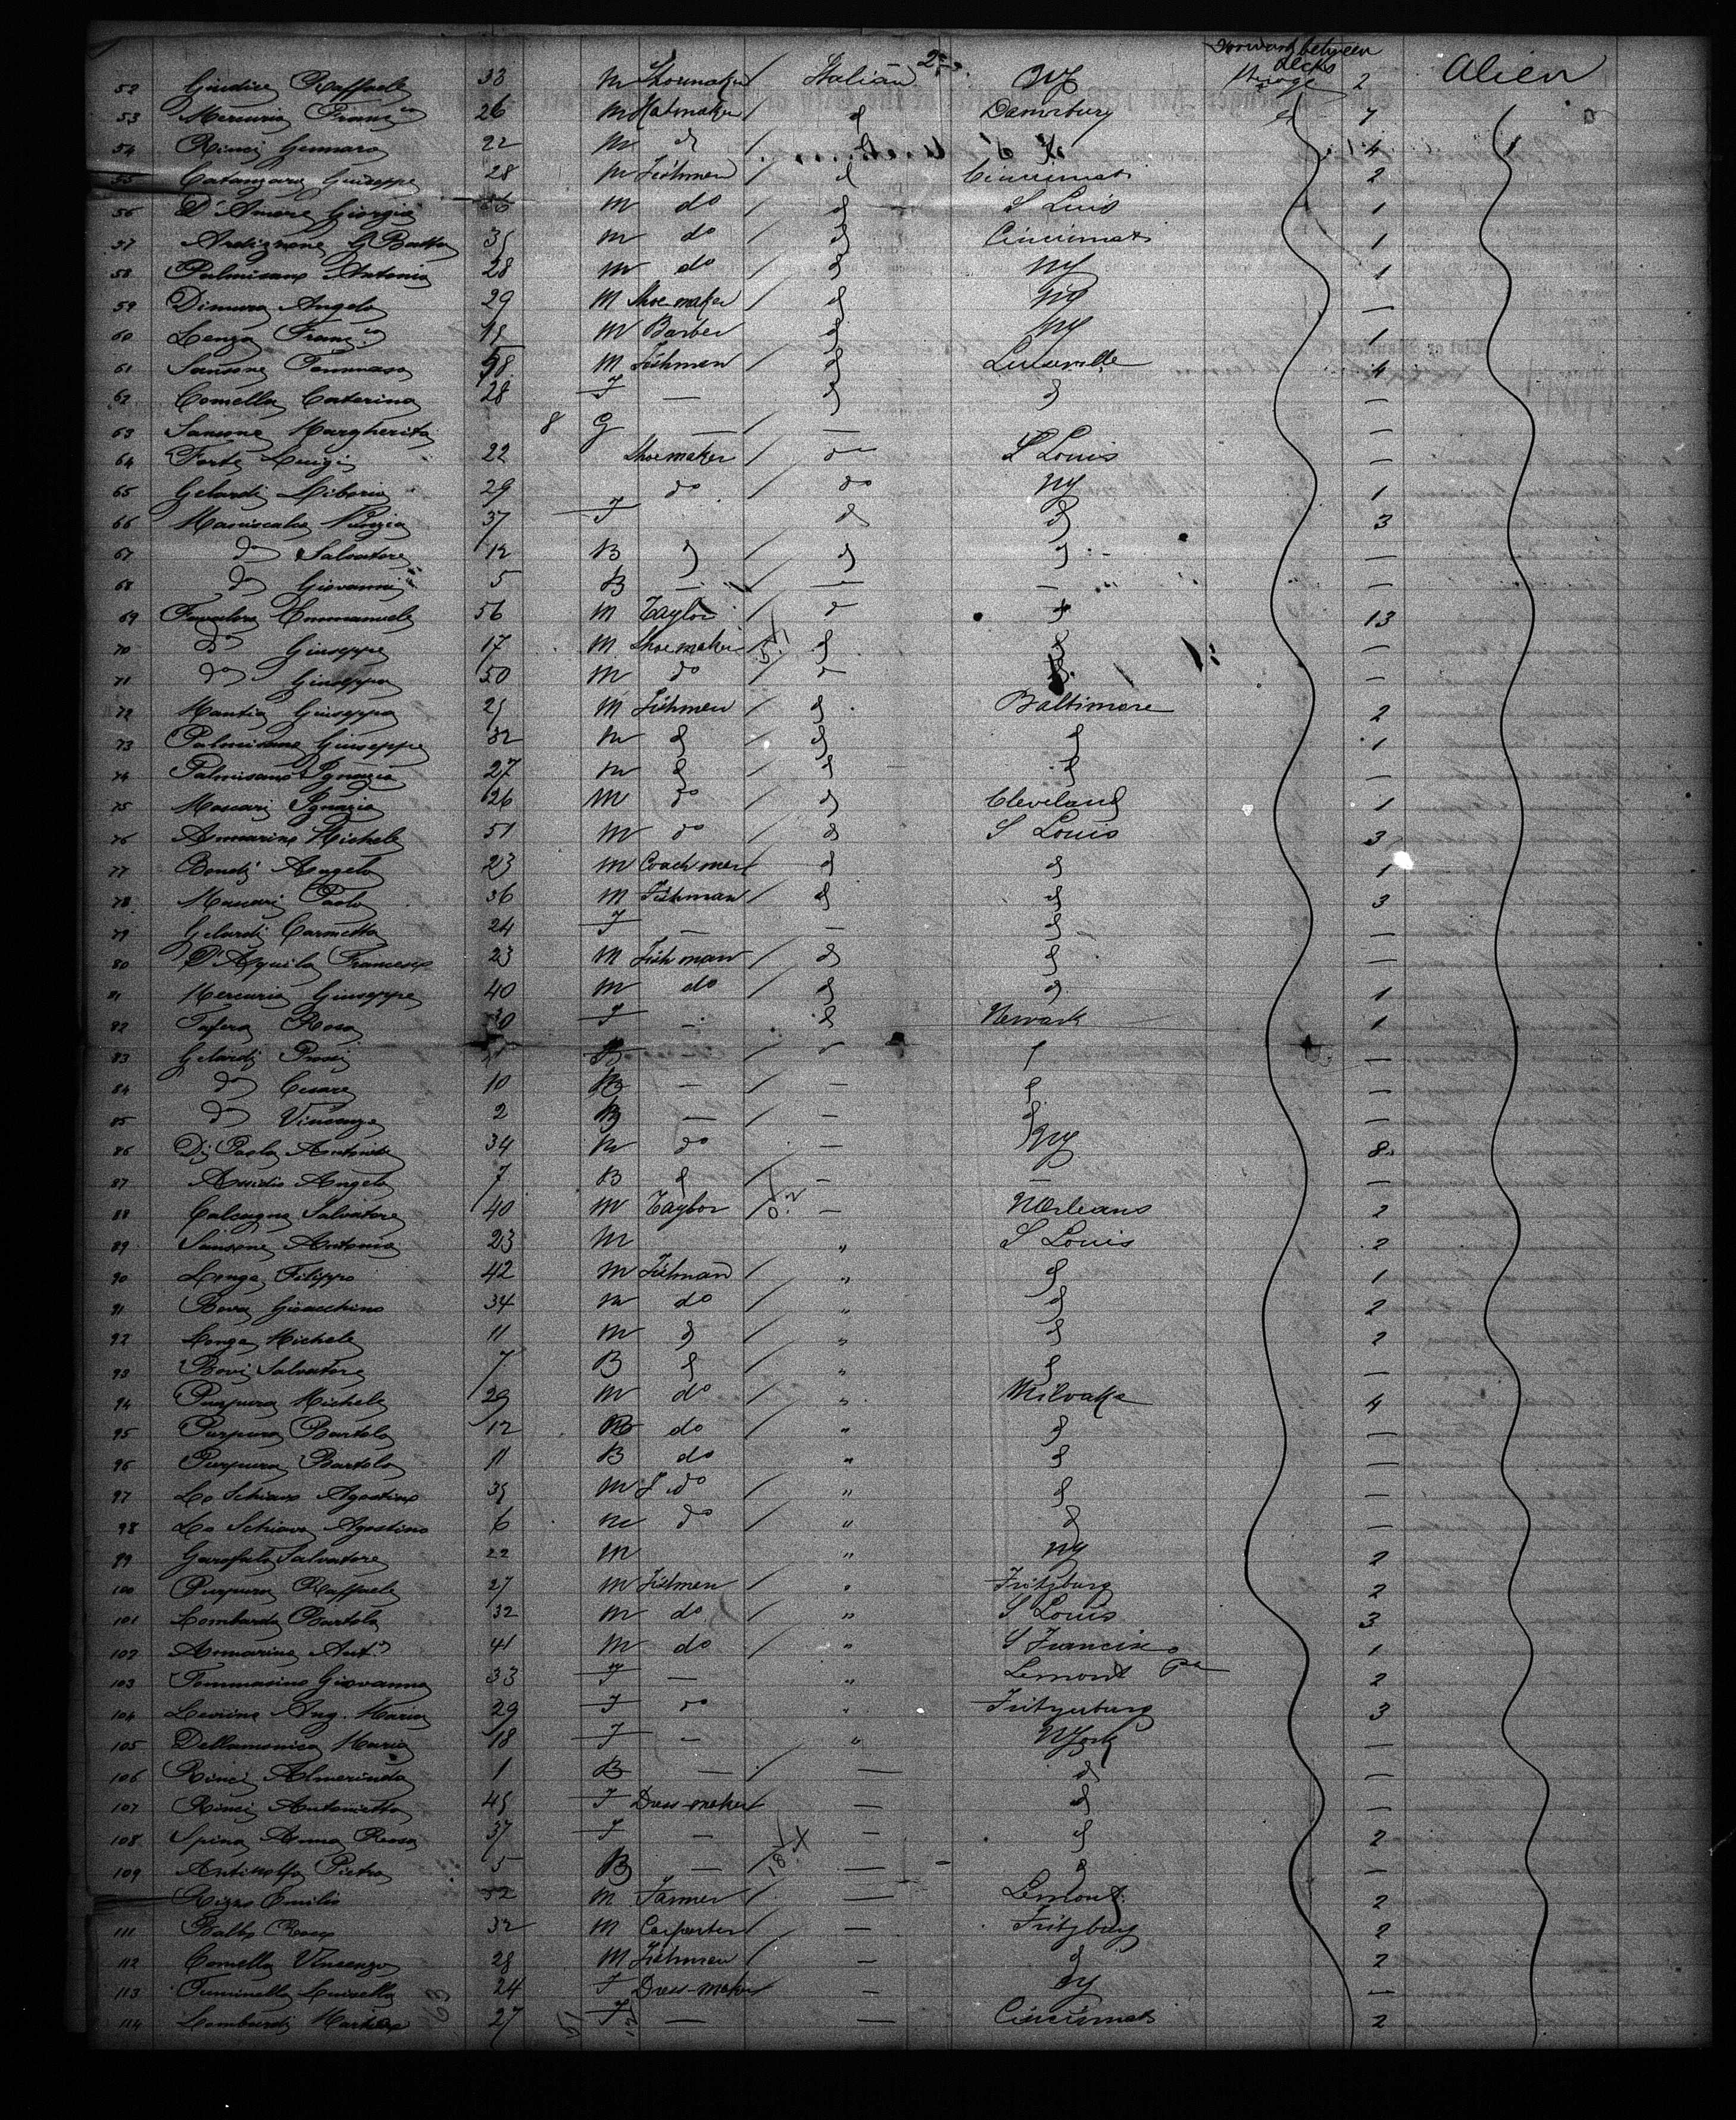 Forward between decks
52 Giudice Raffaele 33 M Shoemaker / Italian NY Steerage 2 Alien
53 Mercurio Franc.co 26 M Hatmaker / d 7
54 Rinci Gennaro 22 M d / d 4
55 Catanzaro Giuseppe 28 M Fishmen / d Cincinnati 2
56 D'Amore Giorgio M do / d S Luis 1
57 G Batta 35 M do / d Cincinnati 1
58 Palmisano Antonio 28 M do / d NY 1
59 Dimura Angelo 29 M Shoe maker / d NY —
60 Lenza Franc.co M Barber d NY 1
61 Sansone Tommaso 38 M Fishmen / d Luisville 4
62 Comella Caterina 28 F — d d —
63 Sansone Margherita 8 G — / — —
64 Forte Luigi 22 Shoemaker / do S Louis —
65 Gelardi Liborio 29 do / do NY 1
66 Maniscalco Nunzia 37 F d d 3
67 do Salvatore 12 B d / d d —
68 do Giovanni 5 B — / — — —
69 Emmanuele 56 M Taylor / do d 13
70 do Giuseppe 17 M Shoemaker / d d —
71 do Giuseppe 50 M do / do d —
72 Mantia Giuseppe 25 M Fishmen / d Baltimore 2
73 Palmisano Giuseppe 32 M d / d d 1
74 Palmisano Ignazio 27 M d / d d —
75 Mascari Ignazio 26 M do / d Cleveland 1
76 Ammarino Michele 51 M do / d S Louis 3
77 Bondi Angelo 23 M Coachmen / d d 1
78 Mascari Paolo 36 M Fishman / d d 3
79 Gelardi Carmetta 24 F — — d —
80 D'Aquila Francesco 23 M Fishman / d d —
81 Mercurio Giuseppe 40 M do / d d 1
82 Tafera Rosa 30 F — d Newark 1
83 Gelardi B / d d —
84 do Cesare 10 B — / — d —
85 do Vincenzo 2 B — / — d —
86 Di Paola Antonio 34 M do — NY 8
87 Angelo 7 B d / — — —
88 Calcagno Salvatore 40 M Taylor / — N Orleans 2
89 Sansone Antonio 23 M " S Louis 2
90 Longo Filippo 42 M Fishman / " d 1
91 Bova Gioacchino 34 M do / " d 2
92 Longo Michele 11 M d / " d 2
93 Bovi Salvatore 7 B d / " d —
94 Purpura Michele 29 M do / " Milvake 4
95 Purpura Bartolo 12 B do / " d —
96 Purpura Bartolo 11 B do " d —
97 Lo Schiavo Agostino 35 M do / " d —
98 Lo Schiavo Agostino 6 M do / " d —
99 Garofalo Salvatore 22 M " NY 2
100 Purpura Raffaele 27 M Fishmen / " Fritzburg 2
101 Lombardo Bartolo 32 M do / " S Louis 3
102 Ammarino Ant.o 41 M do / " S Francisco 1
103 Tommasino Giovanna 33 F — " Lemont Pa 2
104 Ang. Maria 29 F do " 3
105 Dellamonica Maria 18 F — " N York —
106 Rinci Almerinda 1 B — — d —
107 Rinci Antonietta 45 F Dress-maker — d —
108 Spina Anna Rosa 37 F — — d 2
109 Pietro 5 B — / — d —
Rizzo Emilio 52 M Farmer / — Lemont 2
111 Balbo 32 M Carpenter / — Fritzburg 2
112 Comella Vincenzo 28 M Fishmen / — d 2
113 Tuminello Luisella 24 F Dress-maker — NY —
114 Lombardi 27 F — — Cincinnati 2